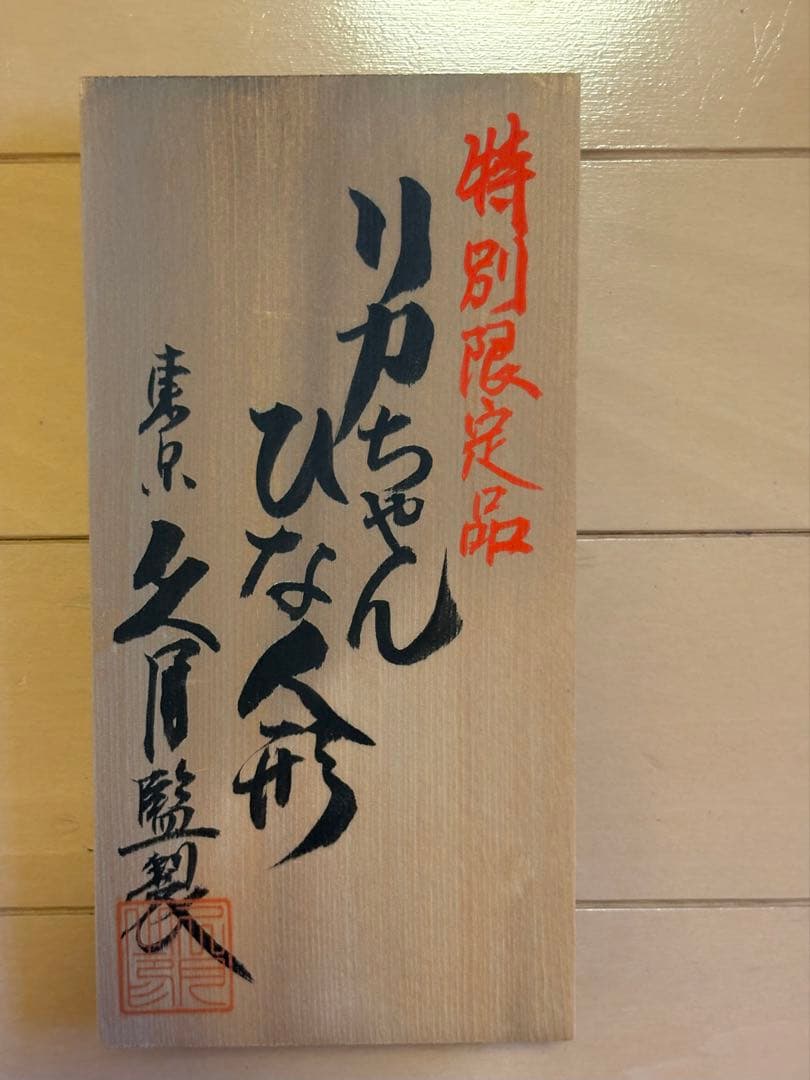 特別限定品
リカちゃん
ひな人形
東京 久月監製